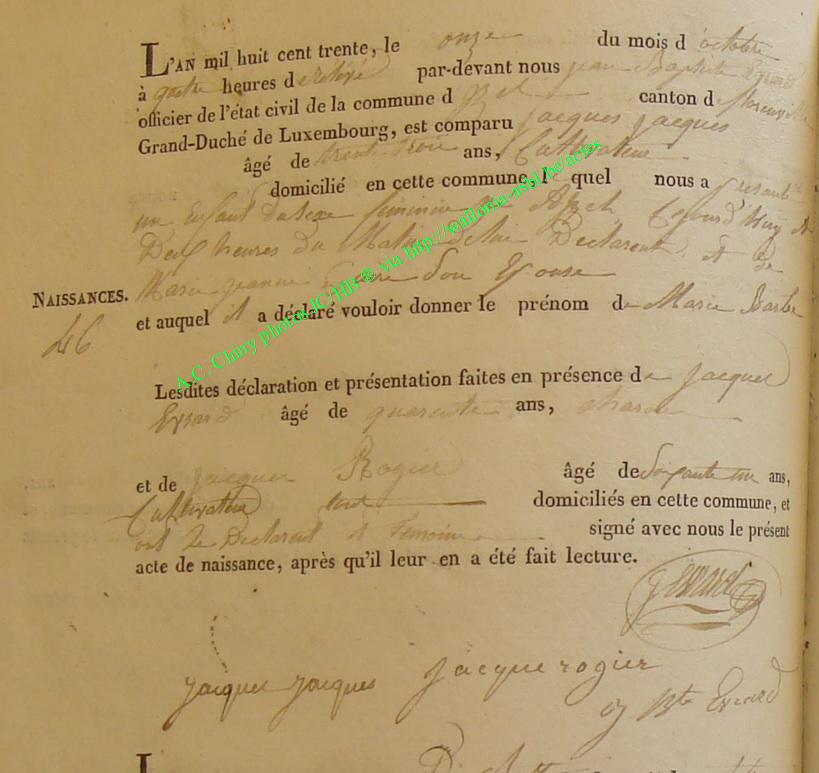 L'AN mil huit cent trente, le onze du mois d octobre
à quatre heures d relevé par-devant nous jean Baptiste Evrard
officier de l'état civil de la commune d canton d florenville
Grand-Duché de Luxembourg, est comparu jacques jacques
âgé de trente trois ans, Cultivateur
domicilié en cette commune, le quel nous a presenté
un Enfant du sexe feminin né aujourd'huy à
Deux heures du Matin de lui Declarent et de
Marie jeanne son Epouse
NAISSANCES.
et auquel il a déclaré vouloir donner le prénom de Marie Barbe
46
Lesdites déclaration et présentation faites en présence de Jacques
Evrard âgé de quarente ans,
et de jacques Rogier âgé de soixante un ans,
Cultivateur tout domiciliés en cette commune, et
ont le Declarent et Temoins signé avec nous le présent
acte de naissance, après qu'il leur en a été fait lecture.
J Evrard
jacques jacques Jacque rogier
j Bte Evrard
A.C. Chiny photos JC/HB ® via http://wallonia-asbl.be/actes